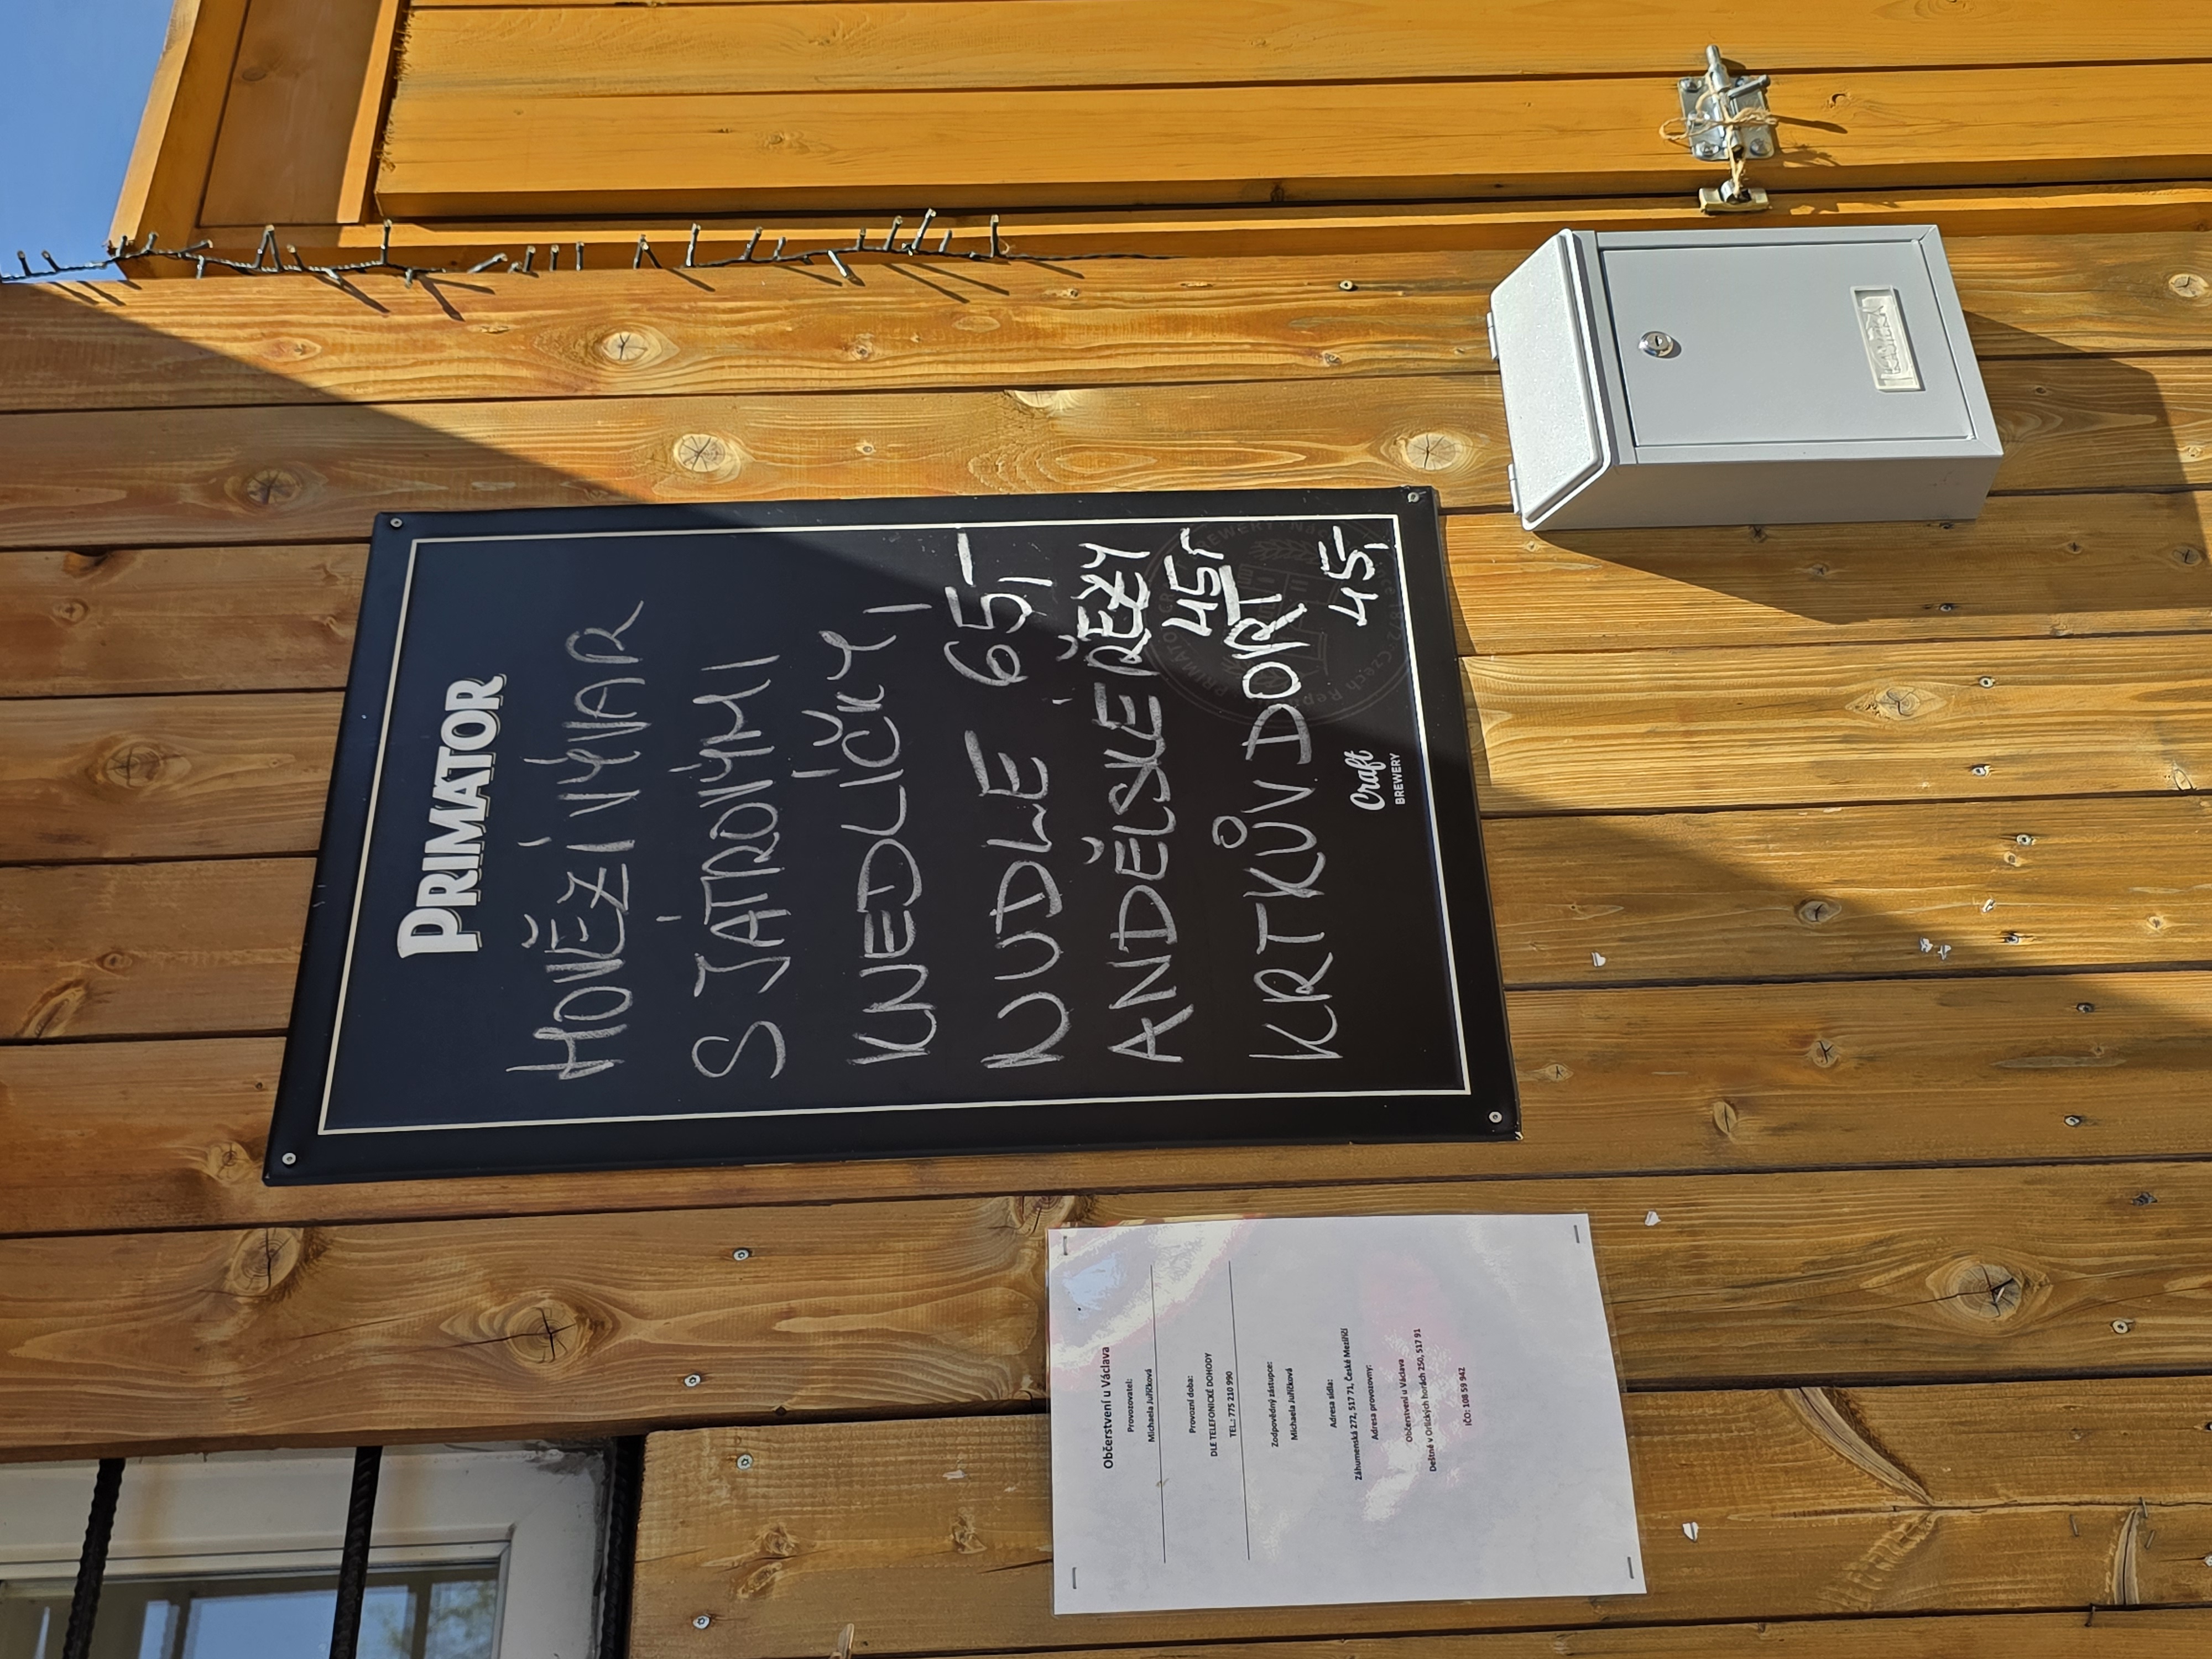 PRIMATOR
HOVĚZÍ VÝVAR
S JÁTROVÝMI
KNEDLÍČKY,
NUDLE 65,-
ANDĚLSKÉ ŘEZY
45,-
KRTKŮV DORT
45,-
Craft
BREWERY
Občerstvení u Václava
Provozovatel:
Michaela Juříčková
Provozní doba:
DLE TELEFONICKÉ DOHODY
TEL.: 775 210 990
Zodpovědný zástupce:
Michaela Juříčková
Adresa sídla:
Záhumenská 272, 517 71, České Meziříčí
Adresa provozovny:
Občerstvení u Václava
Deštné v Orlických horách 250, 517 91
IČO: 108 59 942